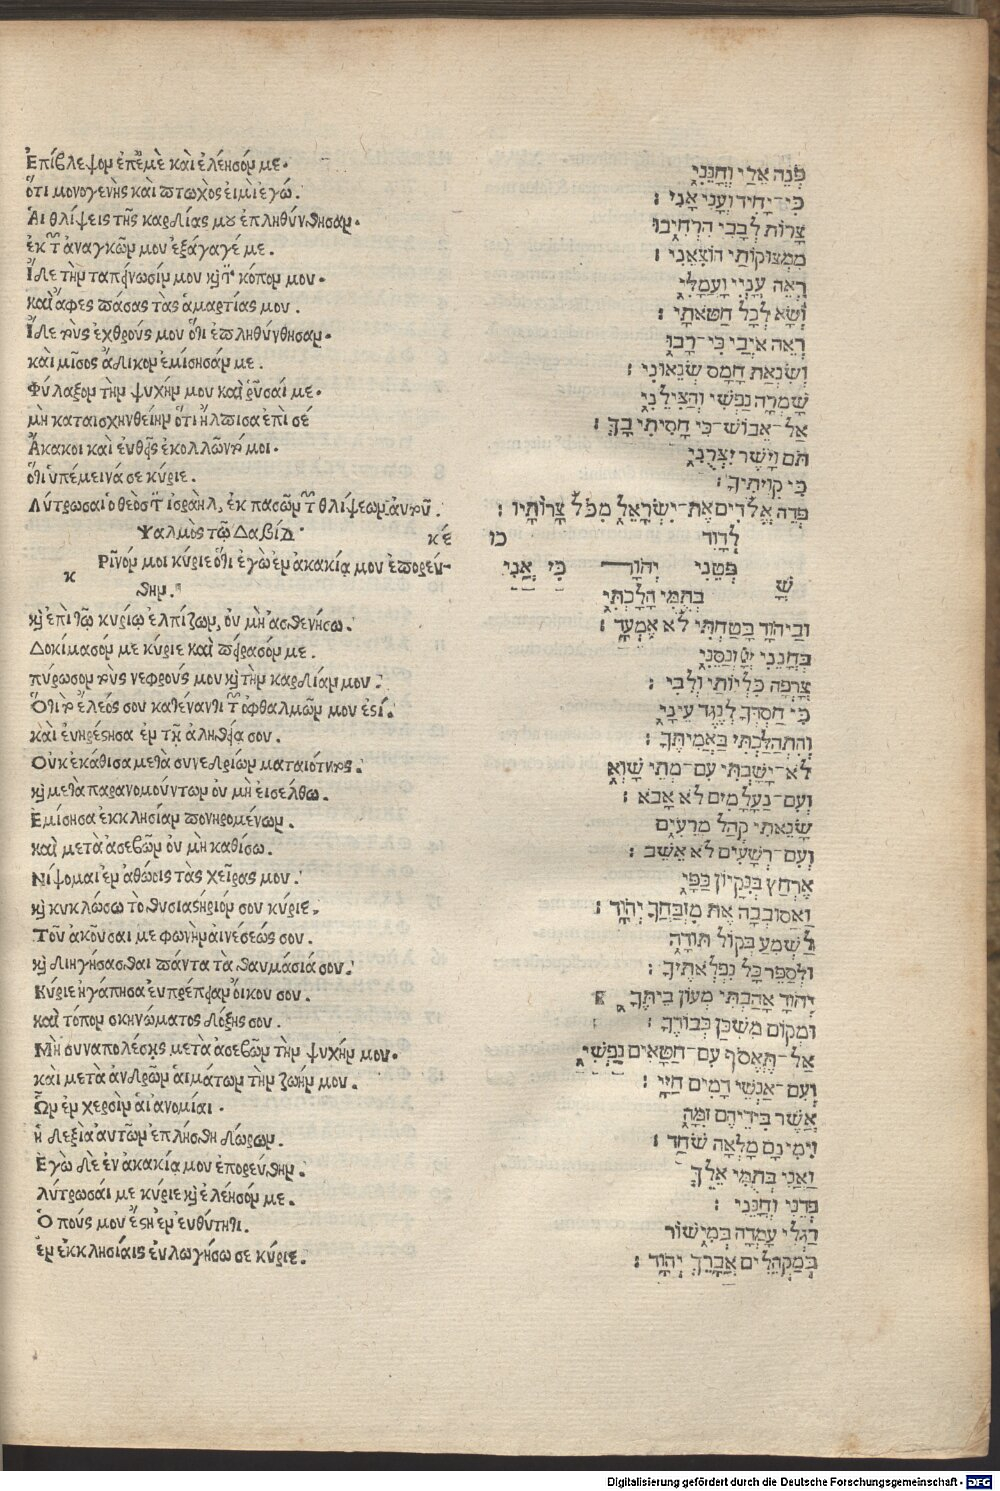 Ἐπίβλεψον ἐπ' ἐμὲ καὶ ἐλέησόν με.
ὅτι μονογενὴς καὶ πτωχὸς εἰμὶ ἐγώ.
Ἁι θλίψεις τῆς καρδίας μου ἐπληθύνθησαν.
ἐκ τῶν ἀναγκῶν μου ἐξάγαγέ με.
Ἴδε τὴν ταπείνωσίν μου καὶ τὸν κόπον μου.
καὶ ἄφες πάσας τὰς ἁμαρτίας μου.
Ἴδε τοὺς ἐχθρούς μου ὅτι ἐπληθύνθησαν.
καὶ μῖσος ἄδικον ἐμίσησάν με.
Φύλαξον τὴν ψυχήν μου καὶ ῥῦσαί με.
μὴ καταισχυνθείην ὅτι ἤλπισα ἐπὶ σέ
Ἄκακοι καὶ ἐυθεῖς ἐκολλῶντό μοι.
ὅτι ὑπέμεινά σε κύριε.
Λύτρωσαι ὁ θεὸς τὸν ἰσραὴλ, ἐκ πασῶν τῶν θλίψεων ἀυτοῦ.
Ψαλμὸς τῷ Δαβίδ κέ
Ρῖνόν μοι κύριε ὅτι ἐγὼ ἐν ἀκακίᾳ μου ἐπορεύ-
κ
θην.
καὶ ἐπὶ τῷ κυρίῳ ἐλπίζων, ὀυ μὴ ἀσθενήσω.
Δοκίμασόν με κύριε καὶ πείρασόν με.
πύρωσον τοὺς νεφρούς μου καὶ τὴν καρδίαν μου.
Ὅτι τὸ ἔλεός σου κατέναντι τῶν ὀφθαλμῶν μου ἐστί.
καὶ ἐυηρέστησα ἐν τῇ ἀληθείᾳ σου.
Οὐκ ἐκάθισα μετὰ συνεδρίων ματαιότητος.
καὶ μετὰ παρανομούντων ὀυ μὴ ἐισέλθω.
Ἐμίσησα ἐκκλησίαν πονηρευομένων.
καὶ μετὰ ἀσεβῶν ὀυ μὴ καθίσω.
Νίψομαι ἐν ἀθώοις τὰς χεῖρας μου.
καὶ κυκλώσω τὸ θυσιαστήριόν σου κύριε.
Τοῦ ἀκοῦσαι με φωνὴν ἀινέσεώς σου.
καὶ διηγήσασθαι πάντα τὰ θαυμάσιά σου.
Κύριε ἠγάπησα ἐυπρέπειαν ὄικου σου.
καὶ τόπον σκηνώματος δόξης σου.
Μὴ συναπολέσῃς μετὰ ἀσεβῶν τὴν ψυχήν μου.
καὶ μετὰ ἀνδρῶν ἁιμάτων τὴν ζωήν μου.
Ὧν ἐν χερσὶν ἁι ἀνομίαι.
ἡ δεξιὰ ἀυτῶν ἐπλήσθη δώρων.
Ἐγὼ δὲ ἐν ἀκακίᾳ μου ἐπορεύθην.
λύτρωσαι με κύριε καὶ ἐλέησόν με.
Ὁ πούς μου ἔστη ἐν ἐυθύτητι.
ἐν ἐκκλησίαις ἐυλωγήσω σε κύριε.
פְּנֵה אֵלַי וְחָנֵּנִי
כִּי־יָחִיד וְעָנִי אָנִי :
צָרוֹת לְבָבִי הִרְחִיבוּ
מִמְּצוּקוֹתַי הוֹצִאֵנִי :
רְאֵה עָנְיִי וַעֲמָלִי
וְשָׂא לְכָל חַטֹּאתָי :
רְאֵה אֹיְבַי כִּי־רָבּוּ
וְשִׂנְאַת חָמָס שְׂנֵאוּנִי :
שָׁמְרָה נַפְשִׁי וְהַצִּילֵנִי
אַל־אֵבוֹשׁ־כִּי חָסִיתִי בָךְ :
תֹּם וָיֹשֶׁר יִצְּרוּנִי
כִּי קִוִּיתִיךָ :
פְּדֵה אֱלֹדִים אֶת־יִשְׂרָאֵל מִכֹּל צָרוֹתָיו :
לְדָוִד כו
שָׁ פְּטֵנִי יְהוָֹד כִּי אֲנִי
בְּתֻמִּי הָלַכְתִּי
וּבַיהוָֹד בָּטַחְתִּי לֹא אֶמְעָד :
בְּחָנֵנִי יְיָ וְנַסֵּנִי
צָרְפָה כִלְיוֹתַי וְלִבִּי :
כִּי חַסְדְּךָ לְנֶגֶד עֵינָי
וְהִתְהַלַּכְתִּי בַּאֲמִתֶּךָ :
לֹא־יָשַׁבְתִּי עִם־מְתֵי שָׁוְא
וְעִם־נַעֲלָמִים לֹא אָבֹא :
שָׂנֵאתִי קְהַל מְרֵעִים
וְעִם־רְשָׁעִים לֹא אֵשֵׁב :
אֶרְחַץ בְּנִקָּיוֹן כַּפָּי
וַאֲסוֹבְבָה אֶת מִזְבַּחֲךָ יְהוָֹד :
לַשְׁמִעַ בְּקוֹל תּוֹדָה
וּלְסַפֵּר כָּל נִפְלְאֹתֶיךָ :
יְהוָֹד אָהַבְתִּי מְעוֹן בֵּיתֶךָ
וּמְקוֹם מִשְׁכַּן כְּבוֹדֶךָ :
אַל־תֶּאֱסֹף עִם־חַטָּאִים נַפְשִׁי
וְעִם־אַנְשֵׁי דָמִים חַיָּי :
אֲשֶׁר בִּידֵיהֶם זִמָּה
וִימִינָם מָלְאָה שֹּׁחַד :
וַאֲנִי בְּתֻמִּי אֵלֵךְ
פְּדֵנִי וְחָנֵּנִי :
רַגְלִי עָמְדָה בְמִישׁוֹר
בְּמַקְהֵלִים אֲבָרֵךְ יְהוָֹד :
Digitalisierung gefördert durch die Deutsche Forschungsgemeinschaft - DFG